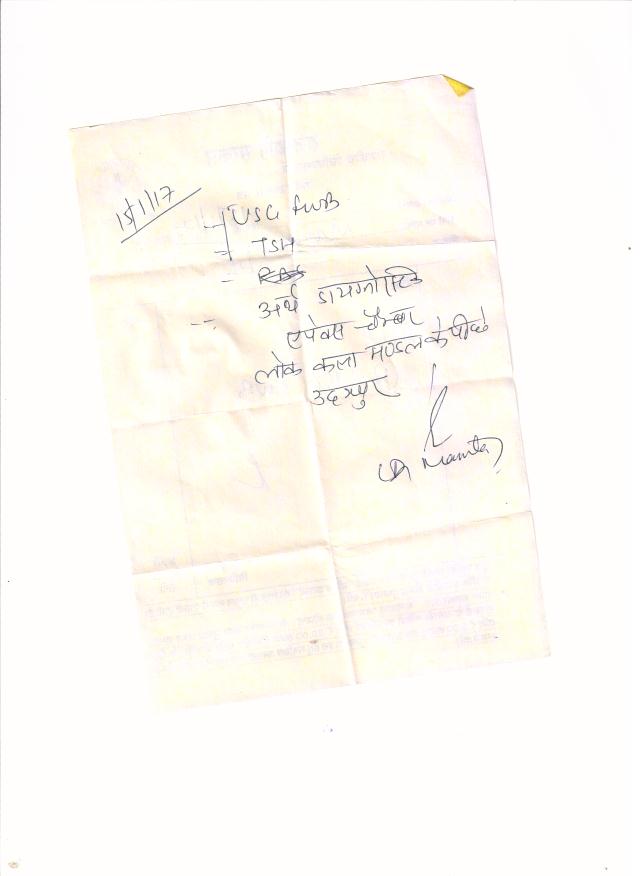 15/1/17
- USG FWB
- TSH
- RBS
-: अर्थ डायग्नोस्टि
एपेक्स चैम्बर
लोक कला मण्डल के पीछे
उदयपुर
(Dr Mamta)